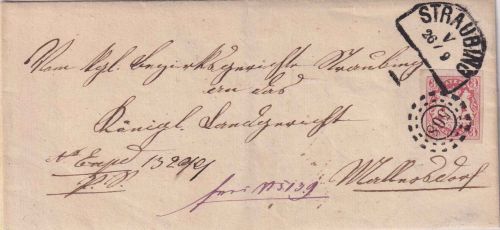 STRAUBING
V
26/ 9
Vom kgl. Bezirksgerichte Straubing
an das
Königl. Landgericht
Mallersdorf
No Exped 132
503